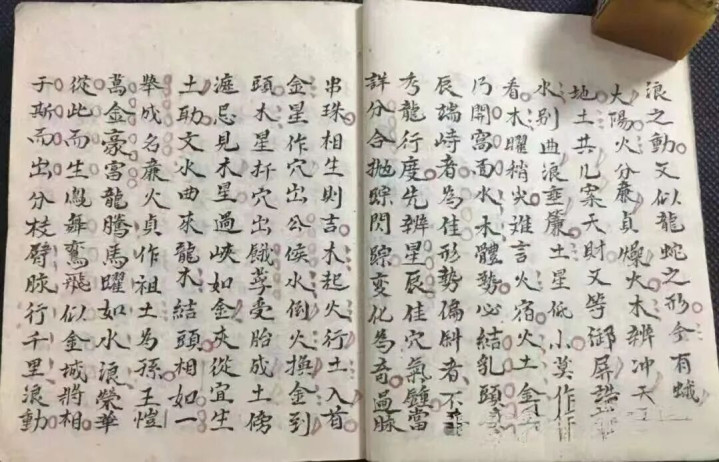 浪之動又似龍蛇之形今有蛾
大陽火分廉貞燥火木辨冲天
地土共几案天財又等御屏誥
水别曲浪垂簾土星低小莫作
看木曜梢尖难言火宿火土金
乃開窩面水木體勢必結乳頭
辰端峙者為佳形勢偏斜者不
秀龍行度先辨星辰佳穴氣鍾當
詳分合抛踪閃踪变化為奇過脉
串珠相生則吉木起火行土入首
金星作穴出公侯水倒火換金到
頭木星扦穴出餓莩受胎成土傍
遮忌見木星過峽如金灰從宜生
土助文火曲來龍木結頭相如一
舉成名廉火貞作祖土為孫王愷
萬金豪富龍騰馬曜如水浪榮華
從此而生鳳舞鸞飛似金城將相
于斯而出分枝劈脉行千里浪動